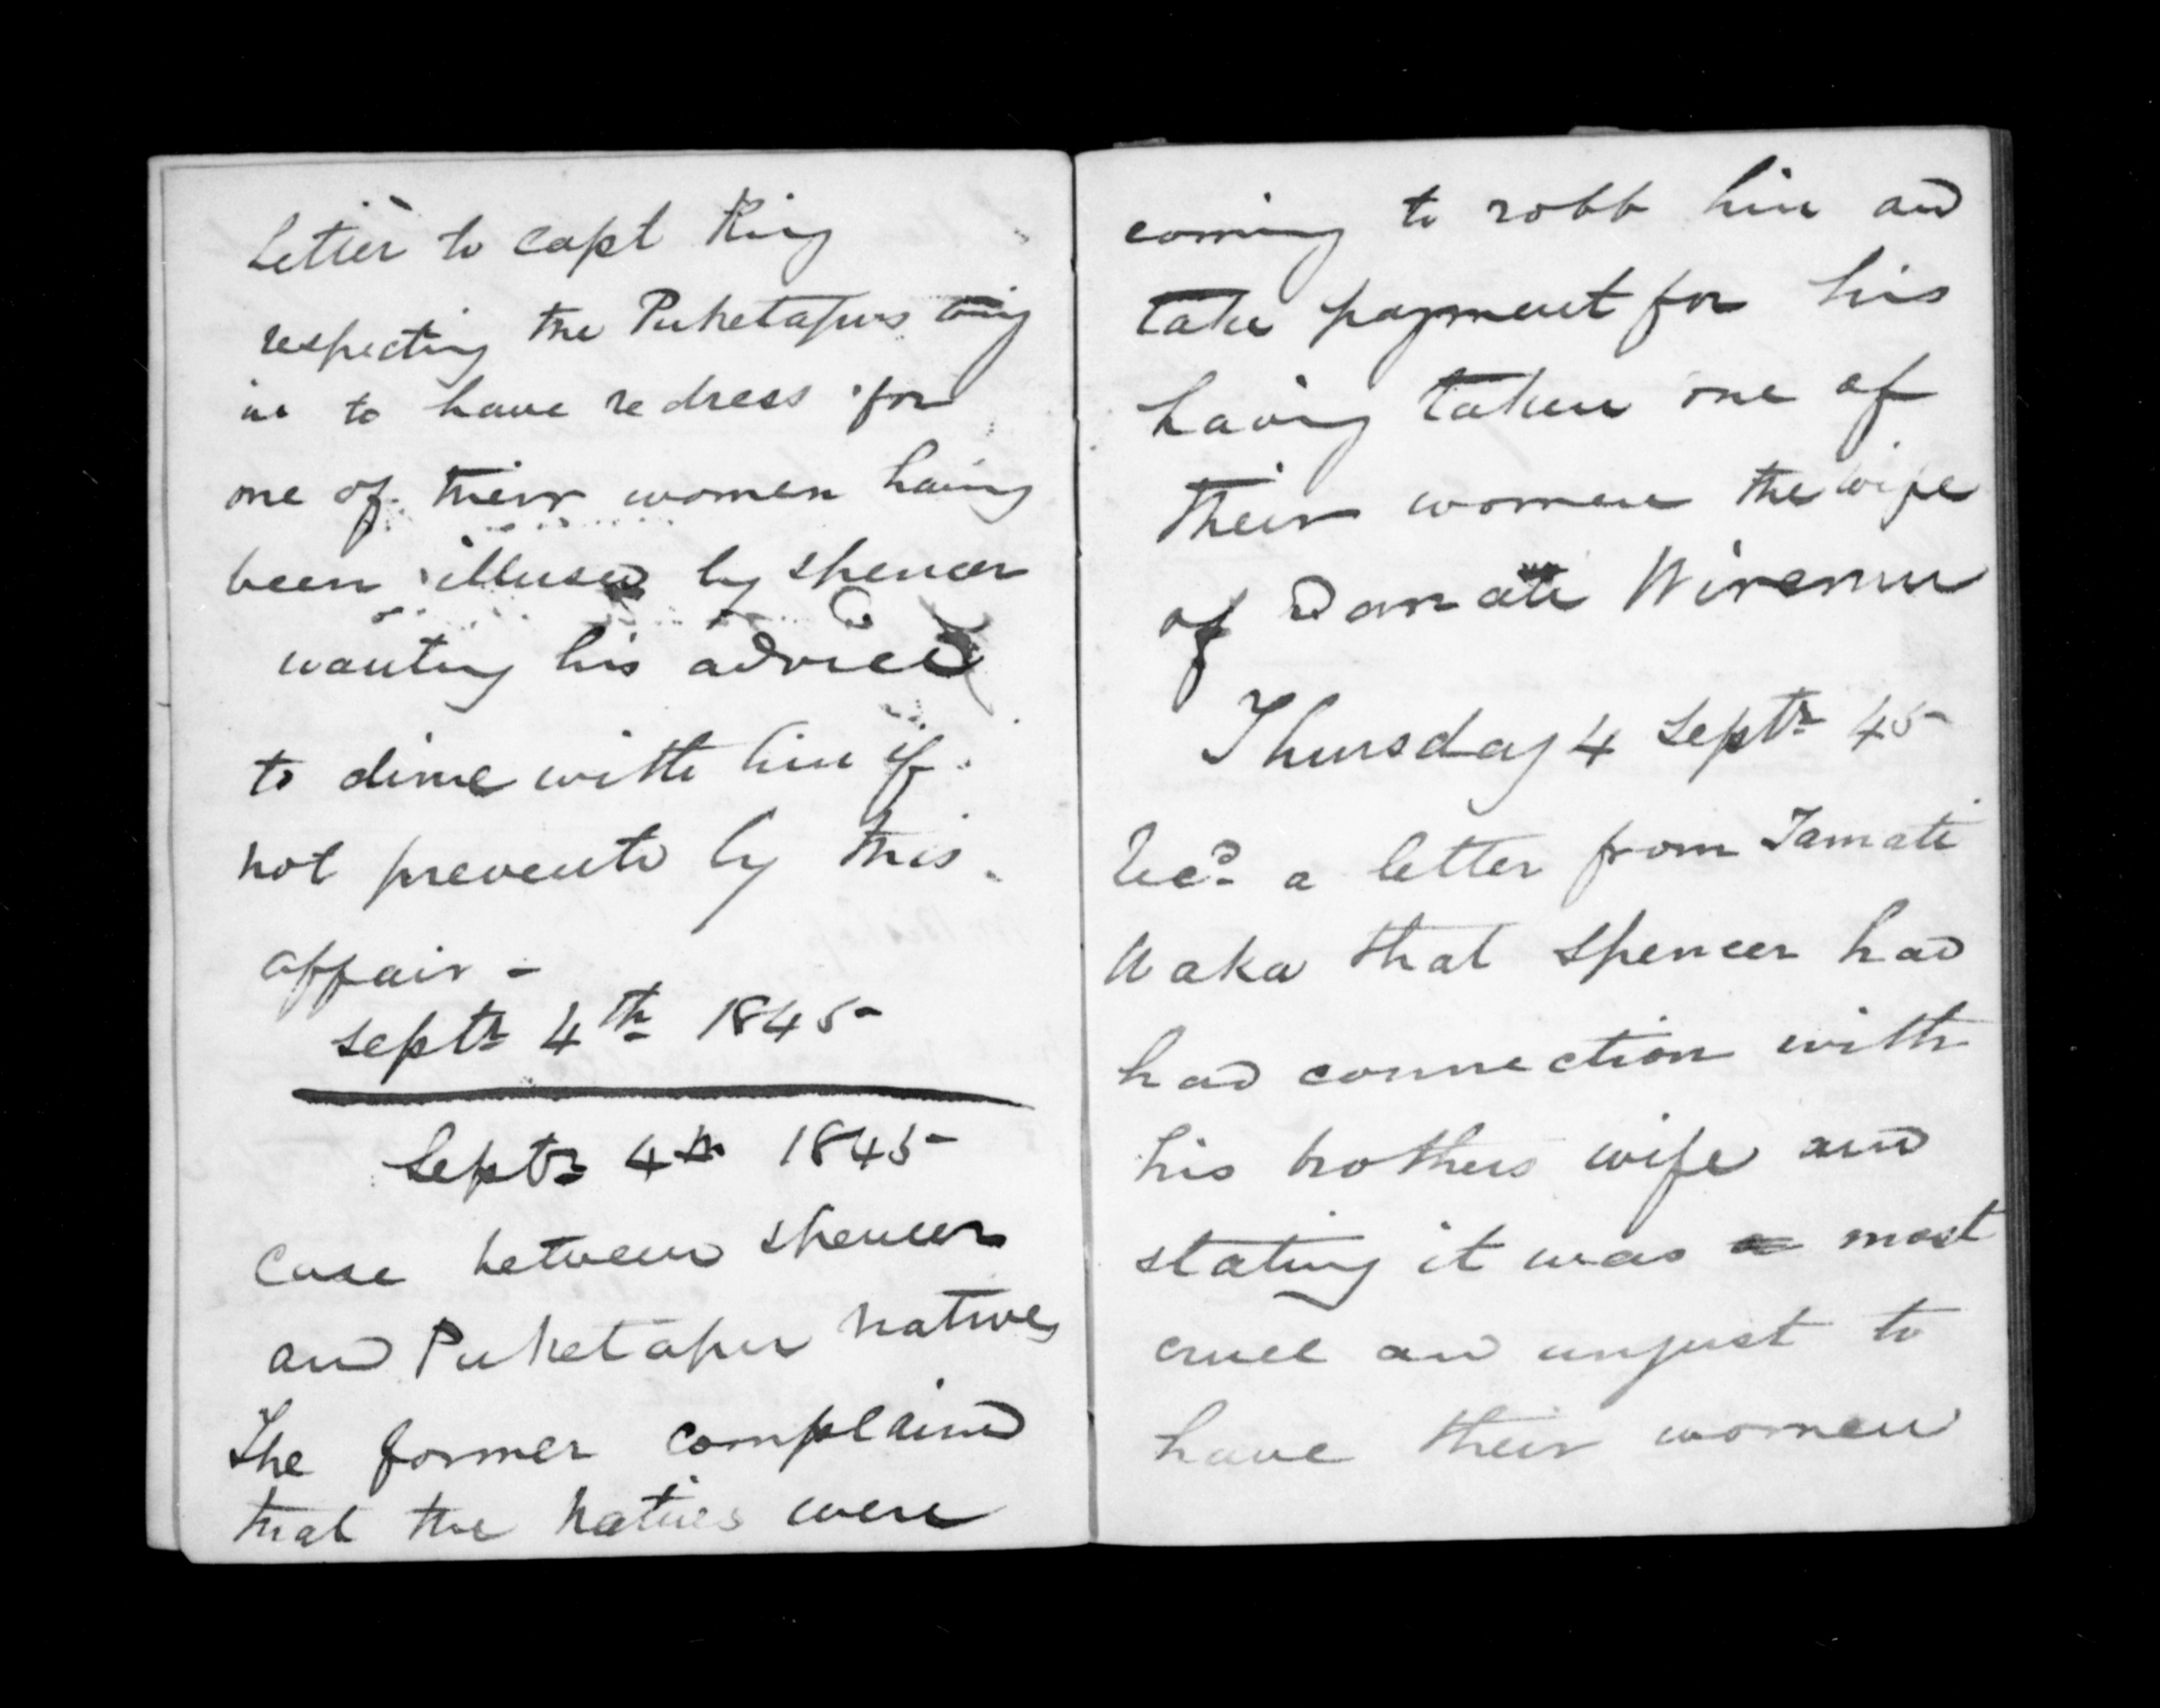 Letter to Capt King
respecting the Puketapus
in to have redress for
one of their women having
been illused by Spencer
wanting his advice
to dine with him if
not prevented by this
affair -
Septr 4th 1845
Septr 4th 1845
Case between Spencer
and Puketapu Natives
The former complained
that the Natives were
coming to robb him and
take payment for his
having taken one of
their women the wife
of Wiremu
Thursday 4 Septr 45
Recd a letter from Tamati
Waka that Spencer had
had connection with
his brothers wife and
stating it was most
cruel and unjust to
have their women